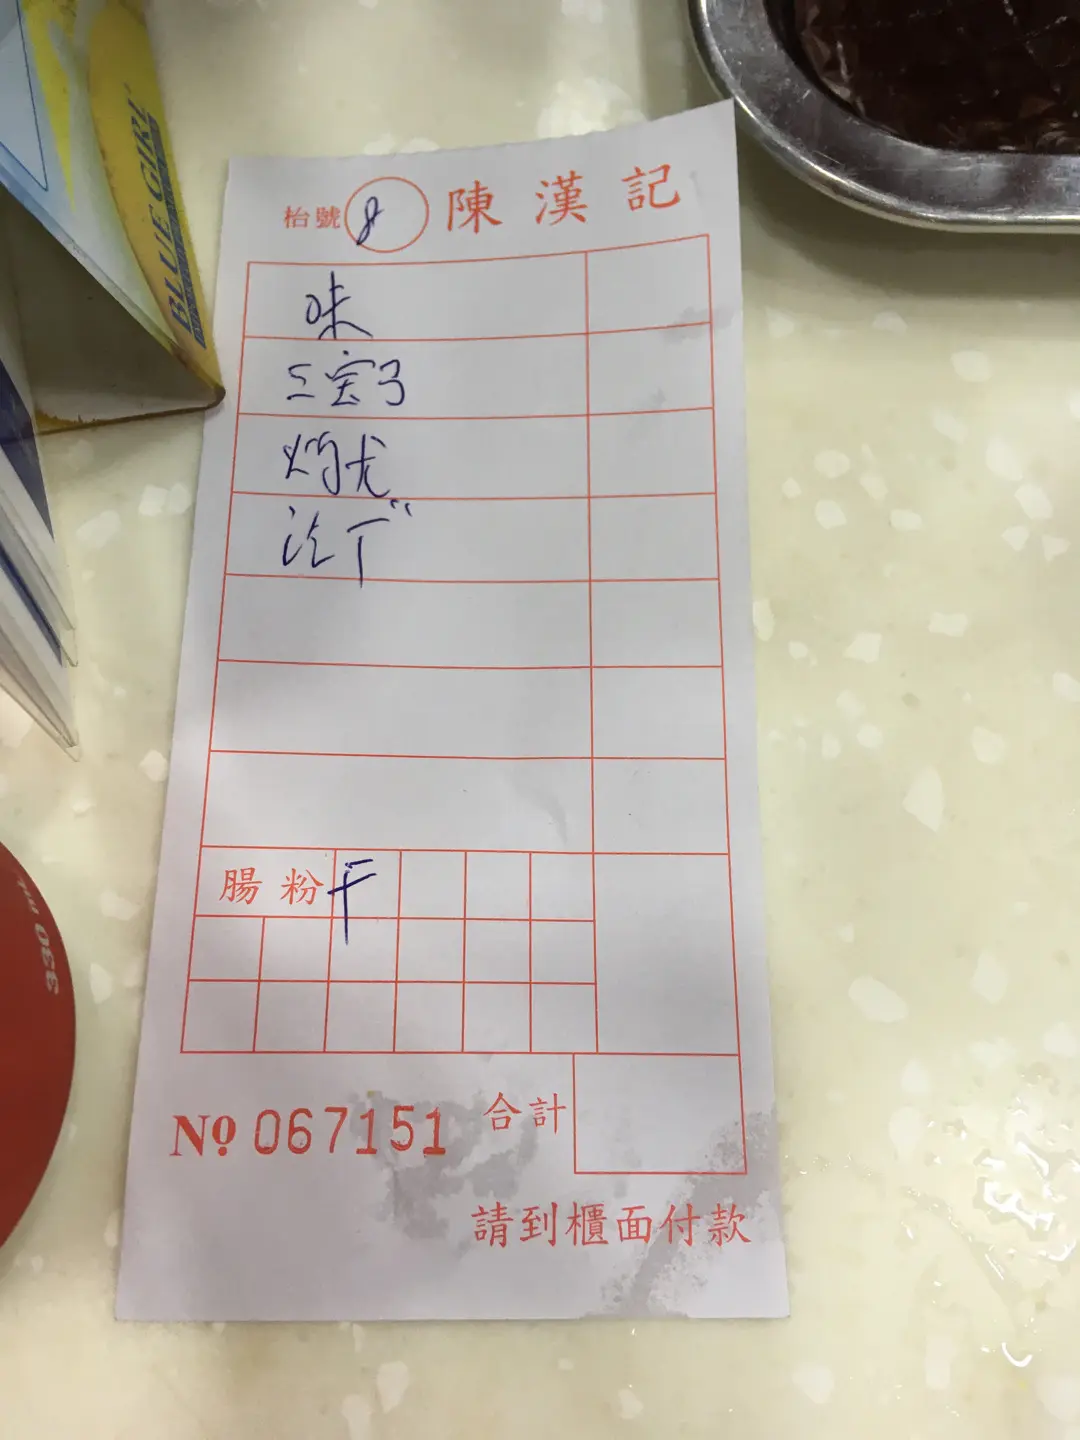 BLUE GIRL
枱號 8 陳漢記
味
三宝子
灼尤
腸粉
330 m
№ 067151 合計
請到櫃面付款